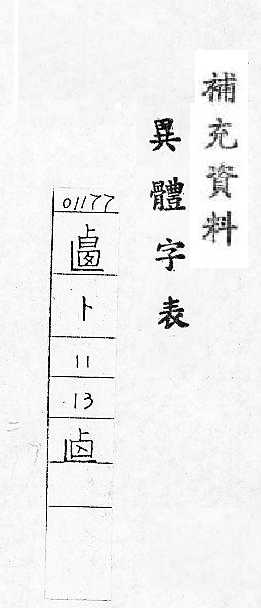 補充資料
異體字表
01177
卜
11
13